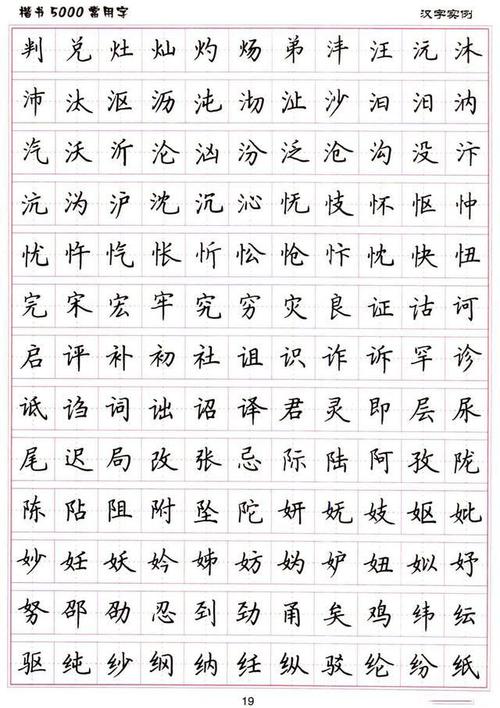 楷书5000常用字 汉字实例
判 兑 灶 灿 灼 炀 弟 沣 汪 沅 沐
沛 汰 沤 沥 沌 沏 沚 沙 汩 汨 汭
汽 沃 沂 沦 汹 汾 泛 沧 沟 没 汴
沆 沩 沪 沈 沉 沁 怃 忮 怀 怄 忡
忧 忤 忾 怅 忻 忪 怆 忭 忱 快 忸
完 宋 宏 牢 究 穷 灾 良 证 诂 诃
启 评 补 初 社 诅 识 诈 诉 罕 诊
诋 诌 词 诎 诏 译 君 灵 即 层 尿
尾 迟 局 改 张 忌 际 陆 阿 孜 陇
陈 阽 阻 附 坠 陀 妍 妩 妓 妪 妣
妙 妊 妖 妗 姊 妨 妫 妒 妞 姒 妤
努 邵 劭 忍 到 劲 甬 矣 鸡 纬 纭
驱 纯 纱 纲 纳 纴 纵 驳 纶 纷 纸
19